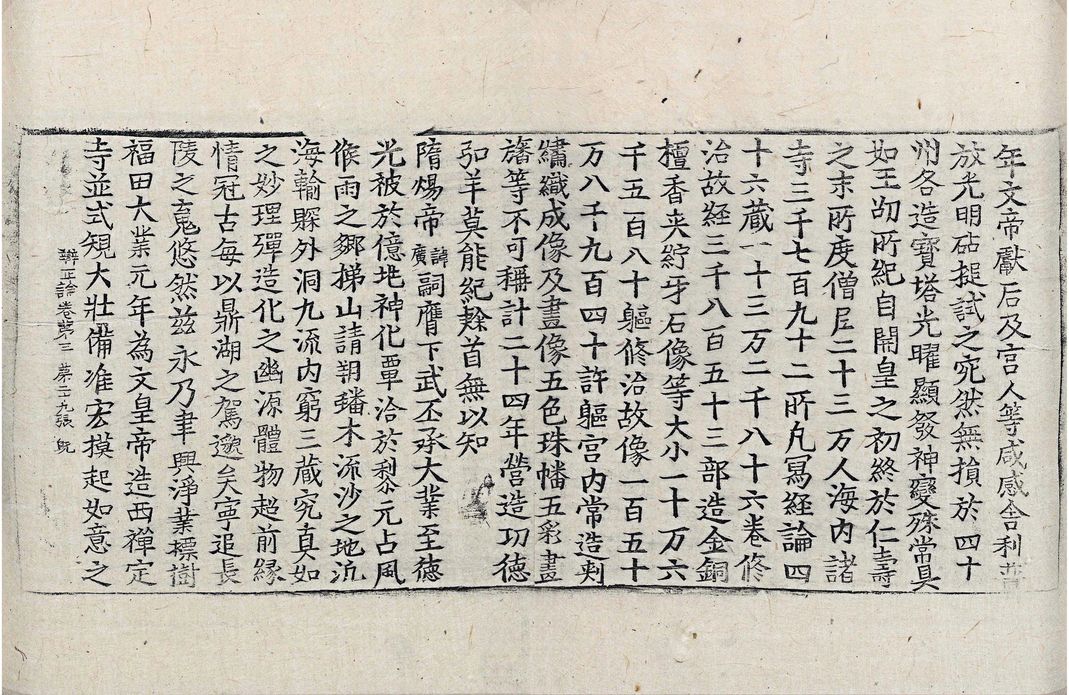 年文帝獻后及宮人等咸感舍利普
放光明砧搥試之宛然無損於四十
州各造寶塔光曜顯發神變殊常具
如王劭所紀自開皇之初終於仁壽
之末所度僧尼二十三万人海內諸
寺三千七百九十二所凡冩経論四
十六藏一十三万二千八十六卷修
治故経三千八百五十三部造金銅
檀香夹紵牙石像等大小一十万六
千五百八十軀修治故像一百五十
万八千九百四十許軀宮內常造刺
繡織成像及畫像五色珠幡五彩畫
旛等不可稱計二十四年營造功德
弘羊莫能紀隸首無以知
隋煬帝諱廣嗣膺下武丕承大業至德
光被於億兆神化覃洽於黎元占風
候雨之鄉梯山請朔蟠木流沙之地沉
海輸賝外洞九流內窮三藏究真如
之妙理彈造化之幽源體物超前緣
情冠古每以鼎湖之駕邈矣寧追長
陵之䰟悠然兹永乃聿興淨業標樹
福田大業元年為文皇帝造西禪定
寺並式規大壯備准宏摸起如意之
辯正論卷第三 第二十九張 旣